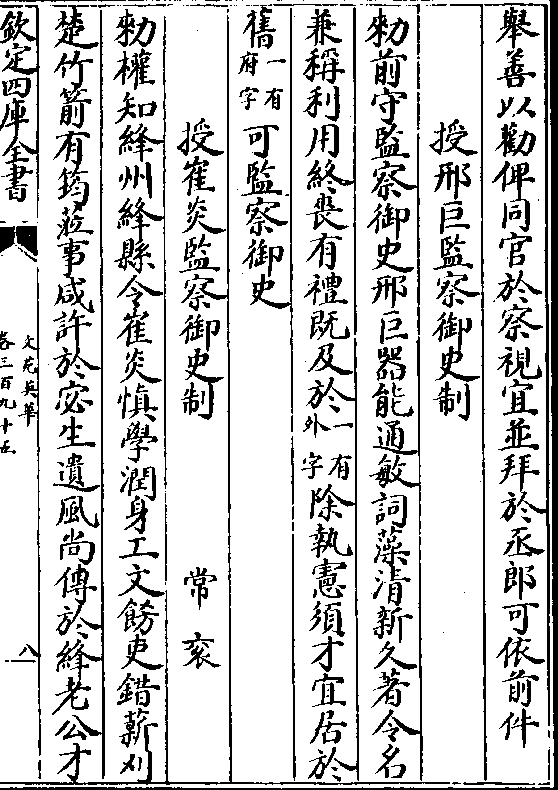 舉善以勸俾同官於察視宜並拜於丞郎可依前件
授邢巨監察御史制
勑前守監察御史邢巨器能通敏詞藻清新久著令名
兼稱利用終喪有禮既及於一有外字除執憲須才宜居於
舊一有府字可監察御史
授崔炎監察御史制 常衮
勑權知絳州絳縣令崔炎慎學潤身工文飭吏錯薪刈
楚竹箭有筠蒞事咸許於宓生遺風尚傳於絳老公才
欽定四庫全書
文苑英華
卷三百九十五
八